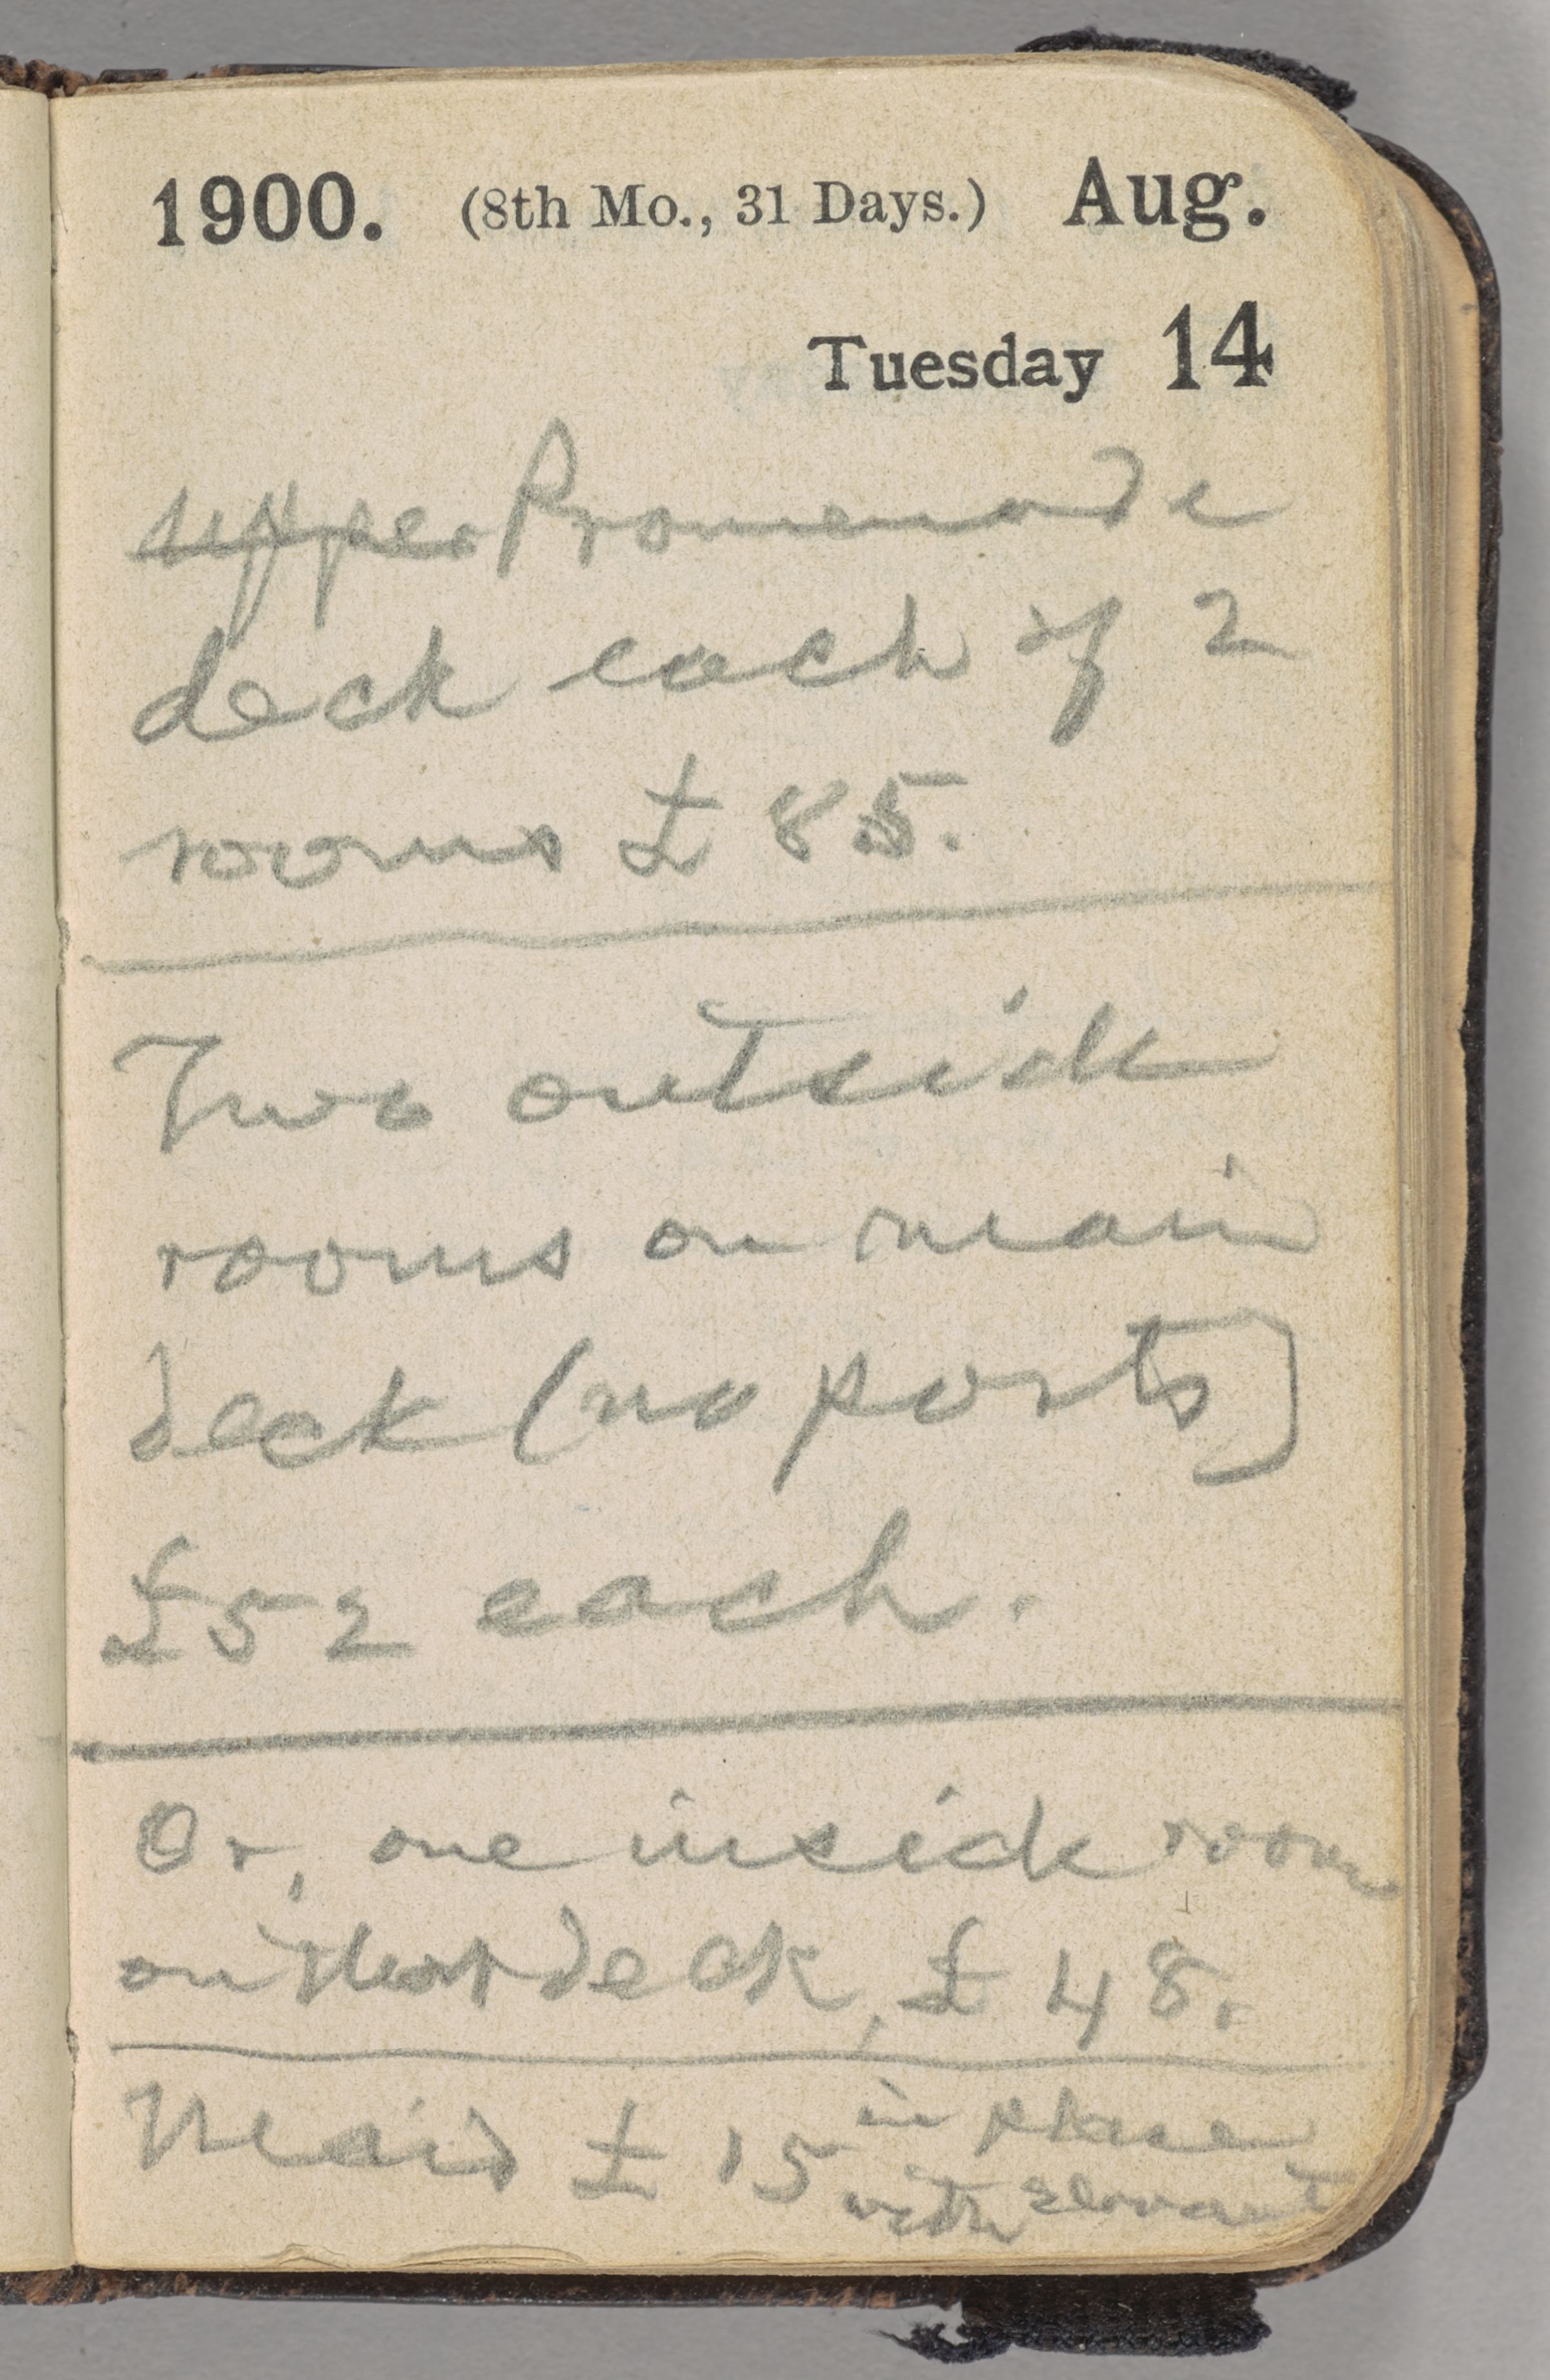 1900. (8th Mo., 31 Days.) Aug.
Tuesday 14
upper Promenade
deck each of 2
rooms £85.
Two outside
rooms on main
deck (no ports)
£52 each.
Or, one inside room
on that deck, £48.
Maid £15 in place
with servant